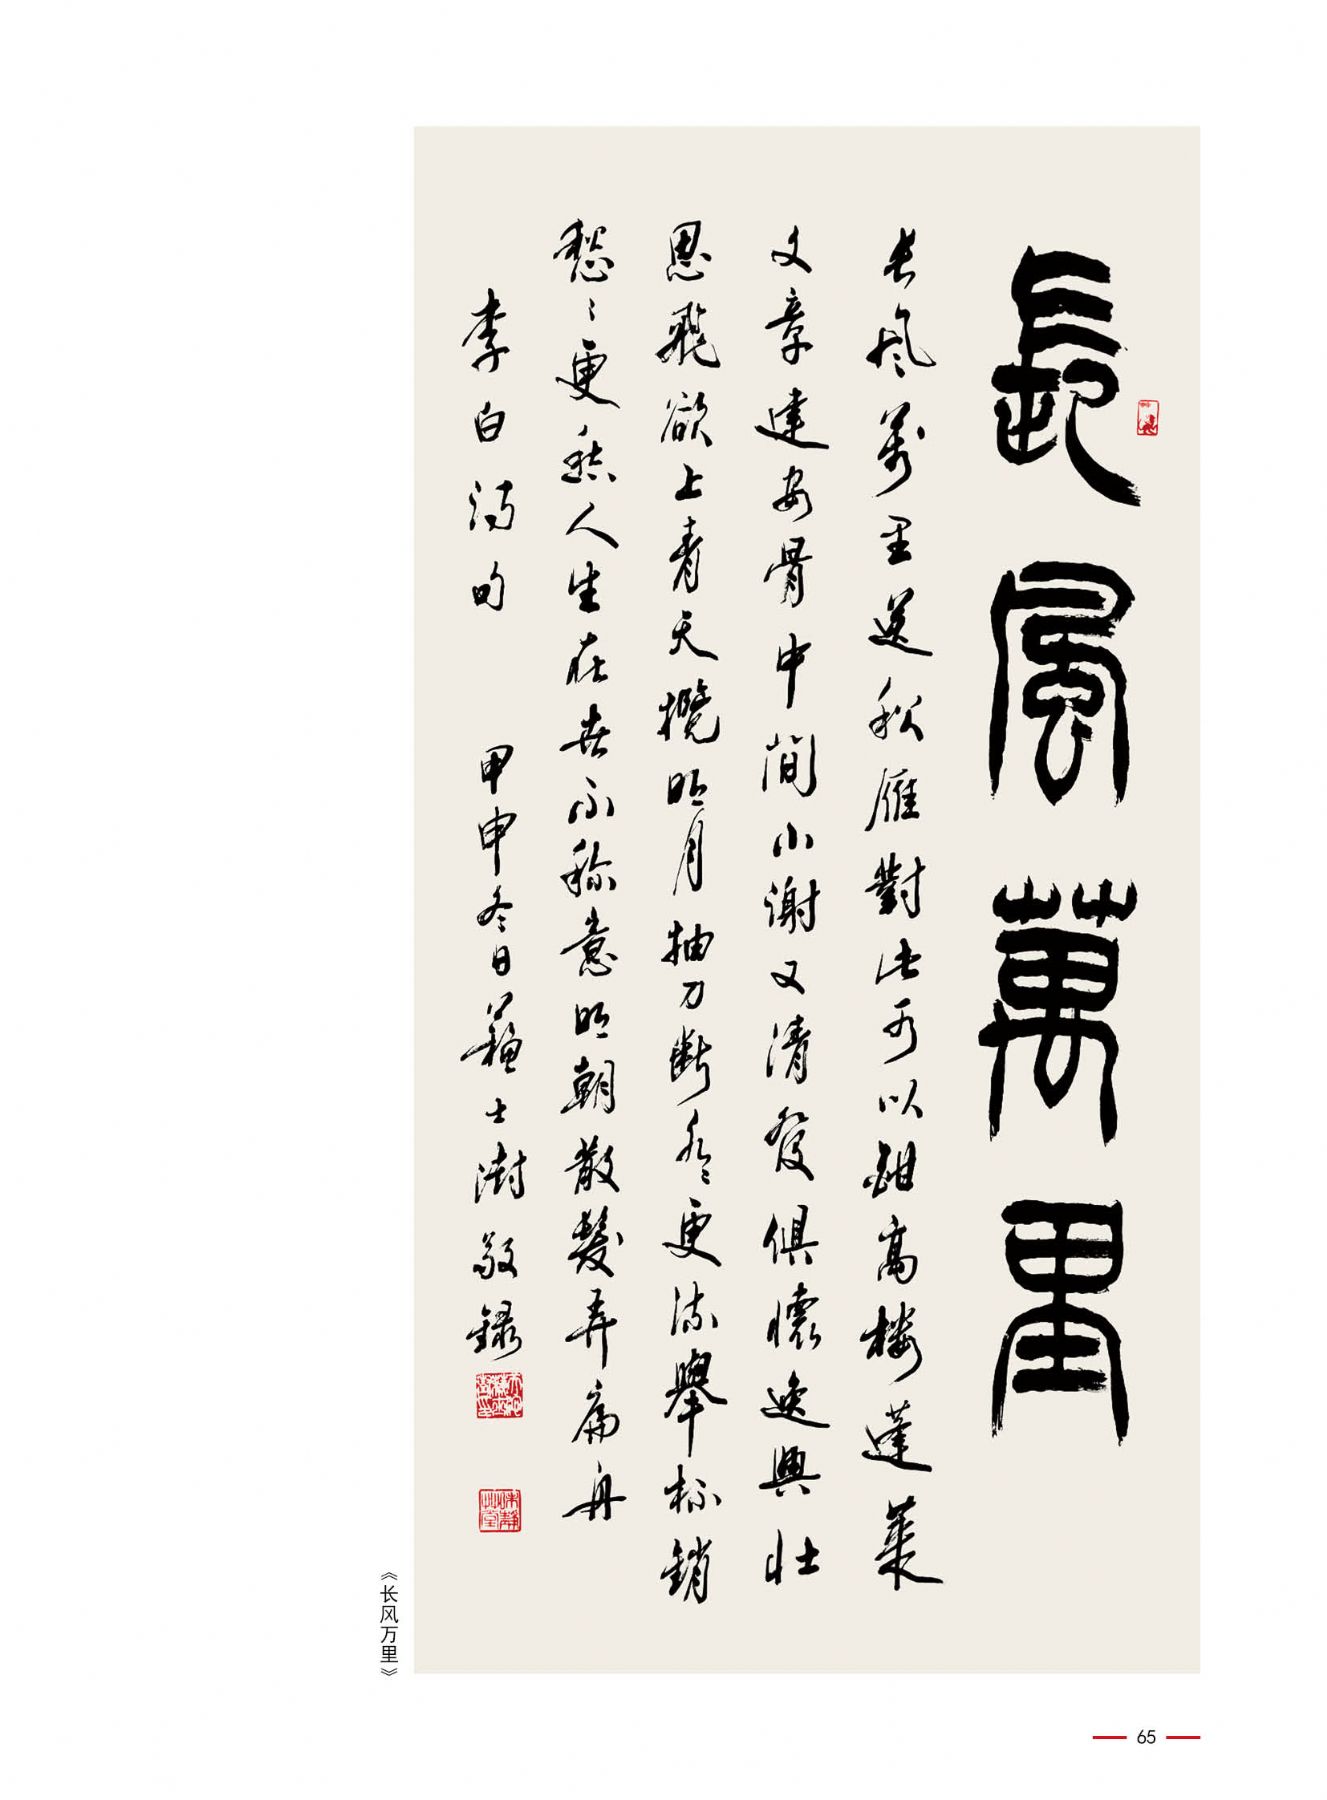 長風萬里
長風萬里送秋雁對此可以酣高樓蓬萊
文章建安骨中簡小謝又清發俱懷逸興壯
思飛欲上青天攬明月抽刀斷水〻更流舉杯銷
愁〻更愁人生在世不称意明朝散髮弄扁舟
李白詩句 甲申冬日蘇士澍敬錄
《长风万里》
65